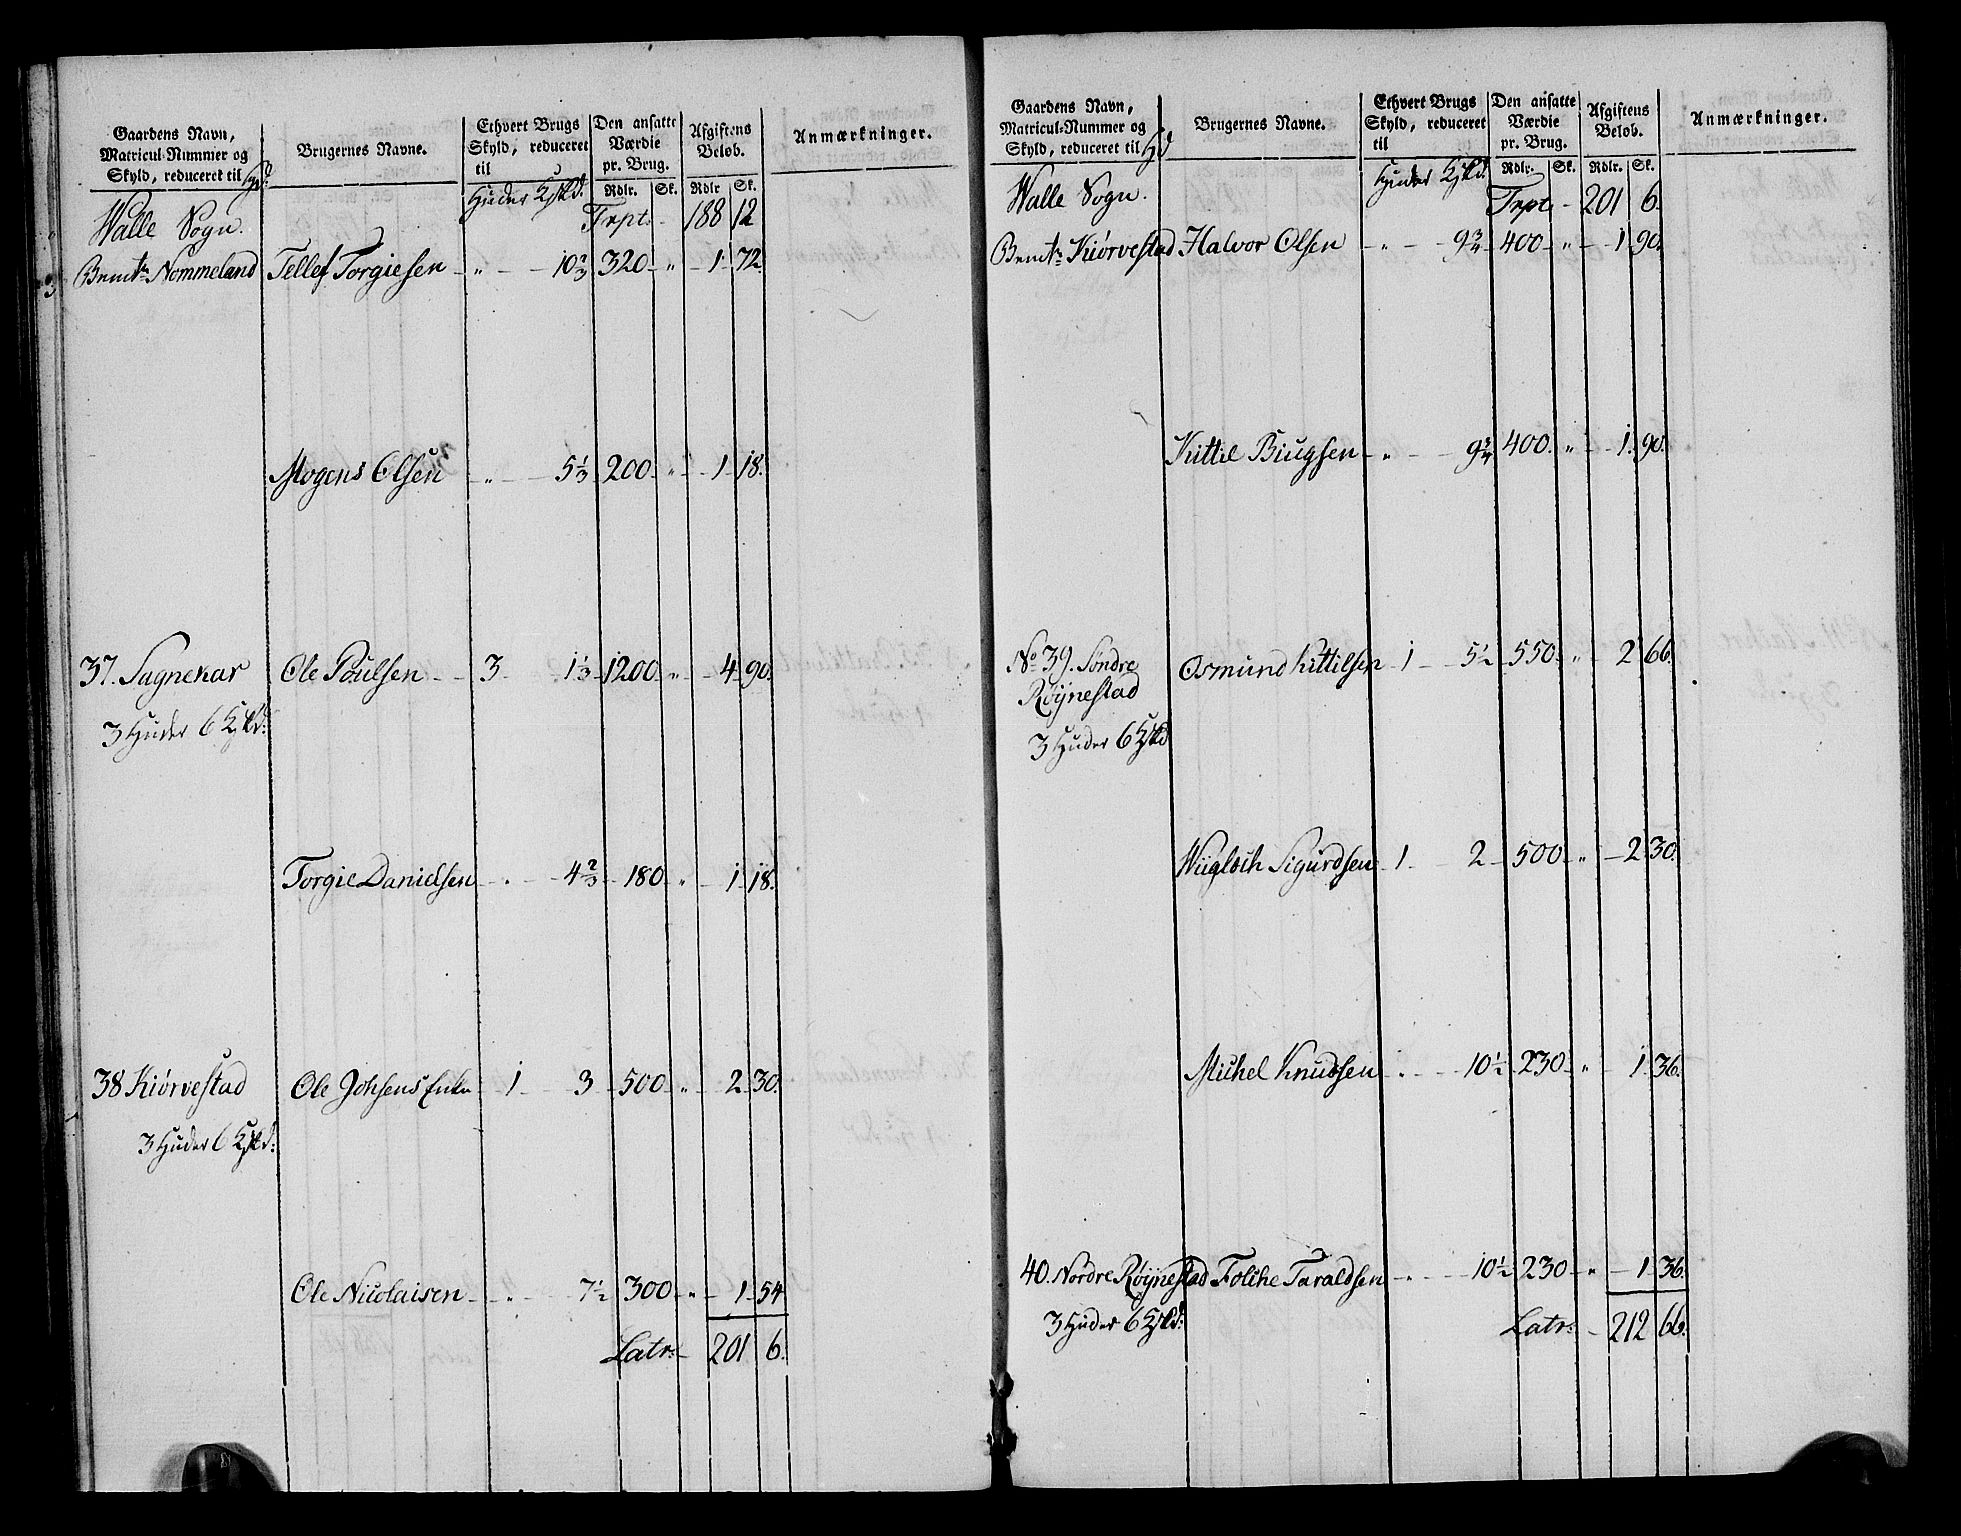 Gaardens Navn, Matricul-Nummer og Skyld, reduceret til Hd: | Brugernes Navne. | Ethvert Brugs Skyld, reduceret til | Den ansatte Værdie pr. Brug. | Afgiftens Beløb. | Anmærkninger.
Huder Kskd. | Rdlr. Sk. | Rdlr Sk.
Walle Sogn. Trpt - 188 12
Bemte Nommeland Tellef Torgiesen - " - 10 2/3 320 - " - 1 - 72
Mogens Olsen - " - 5 1/3 200 - " - 1 - 18.
37. Sagneskar Ole Poulsen - 3 - 1 1/3 1200 - " - 4 - 90.
3 Huder 6 Kskd:
Torgie Danielsen - " - 4 2/3 - 180 - " - 1 18.
38 Kiörvestad Ole Johsens Enke 1 - 3 - 500 - " - 2 - 30.
3 Huder 6 Kskd:
Ole Nicolaisen - " - 7 1/2 300 - " - 1 - 54
Latr: - 201 6.
Gaardens Navn, Matricul-Nummer og Skyld, reduceret til Hd | Brugernes Navne. | Ethvert Brugs Skyld, reduceret til | Den ansatte Værdie pr. Brug. | Afgiftens Beløb. | Anmærkninger.
Huder Kskd. | Rdlr. Sk. | Rdlr. Sk.
Walle Sogn. Trpt - 201 6.
Bemte Kiörvestad Halvor Olsen - " - 9 3/4 400 - " - 1 90.
Kittil Biugsen - " - 9 3/4 400. " - 1. 90.
No 39. Söndre Osmund Kittilsen 1 - 5 1/2 550 - " - 2 66.
Röijnestad
3 Huder 6 Kskd
Wiigleik Sigurdsen 1 - 2 - 500 - " - 2 30.
Michel Knudsen - " - 10 1/2 230 - " - 1. 36.
40. Nordre Röijnestad Folche Taraldsen - " - 10 1/2 230 - " - 1. 36.
3 Huder 6 Kskd:
Latr: - 212 66.